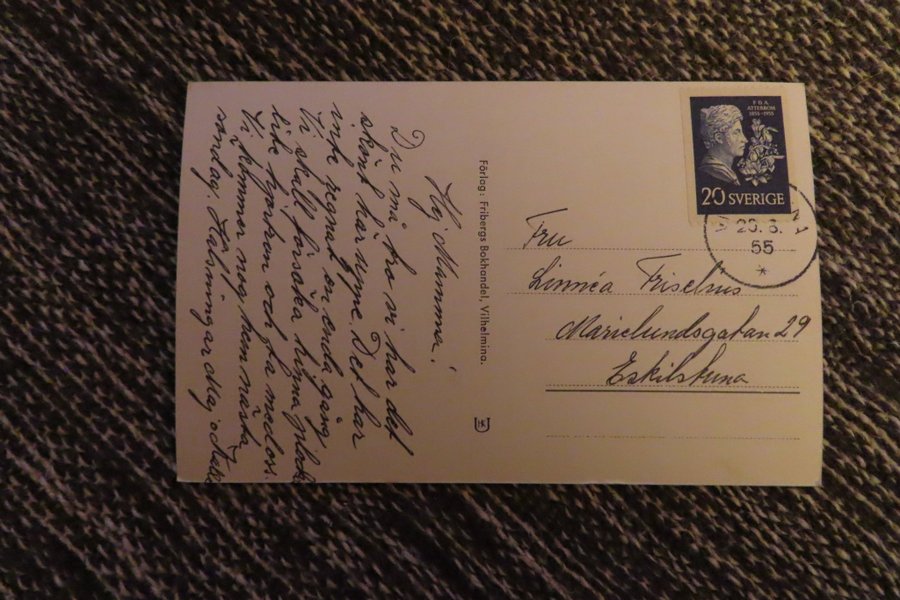 Hej Mamma!
Du må tro vi har det
skönt här uppe. Det har
inte regnat en enda gång.
Vi skall försöka hinna plocka
lite hjortron och ta med oss.
Vi kommer nog hem nästa
söndag. Hälsningar dag o
Förlag: Fribergs Bokhandel, Vilhelmina.
P.D.A.
ATTERBOM
1855-1955
20 SVERIGE
55
Fru
Linnéa
Marielundsgatan 29
Eskilstuna